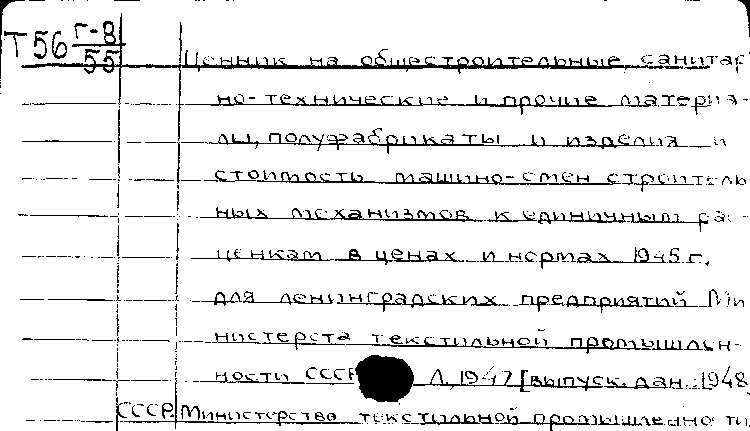 Т56 г-8/55
Ценник на общестроительные, санитар
но-технические и прочие материа-
лы, полуфабрикаты и изделия и
стоимость машино-смен строитель
ных механизмов к единичным рас-
ценкам в ценах и нормах 1945 г.
для ленинградских предприятий Ми
нистерста текстильной промышлен-
ности СССР Л, 1947 [выпуск. дан. 1948
СССР. Министерство текстильной промышленно